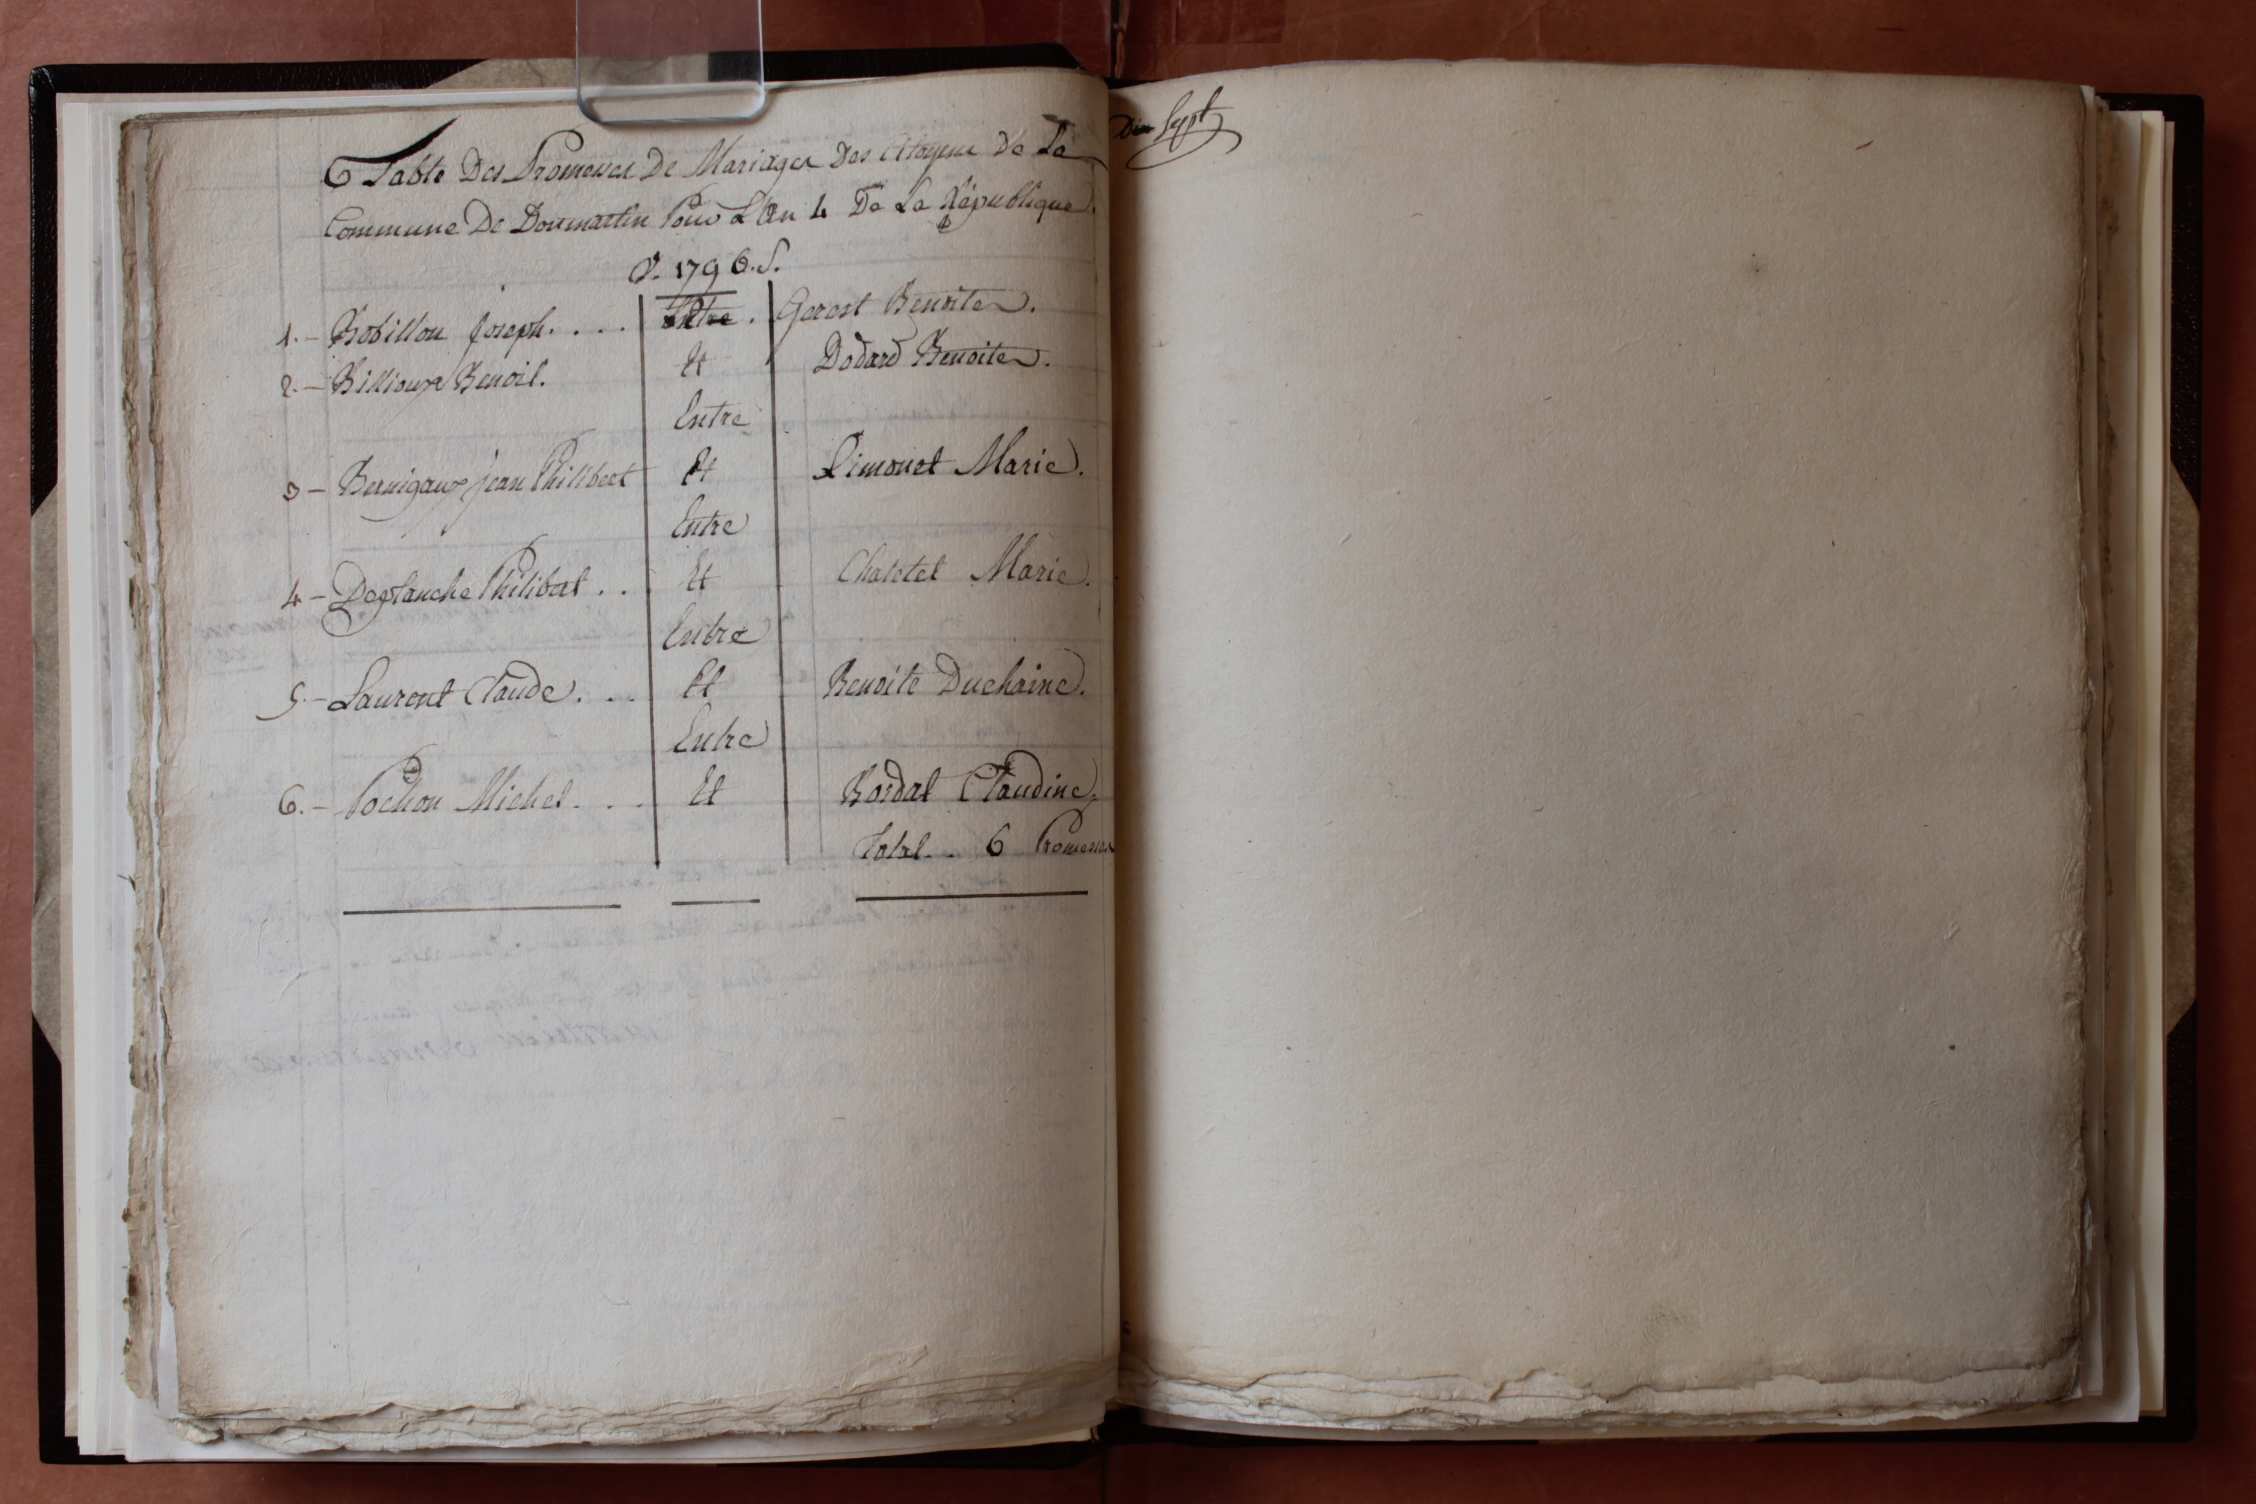 Table Des Promesses De Mariages Des Citoyens De La
Commune De Dommartin Pour L'an 4 De La République.
V. 1796. S.
1. – Robillon joseph. . . . Entre . Gerost Benoite.
2. – Billioux Benoit. Et Dodard Benoite.
Entre
3 – Bernigaux jean Philibert Et Limonet Marie.
Entre
4 – Deplanche Philibert . . Et Chatelet Marie.
Entre
5. – Laurent Claude. . . Et Benoite Duchaine.
Entre
6. – Pochon Michel. . . Et Bordat Claudine.
Total. . 6 Promesses
Dix Sept